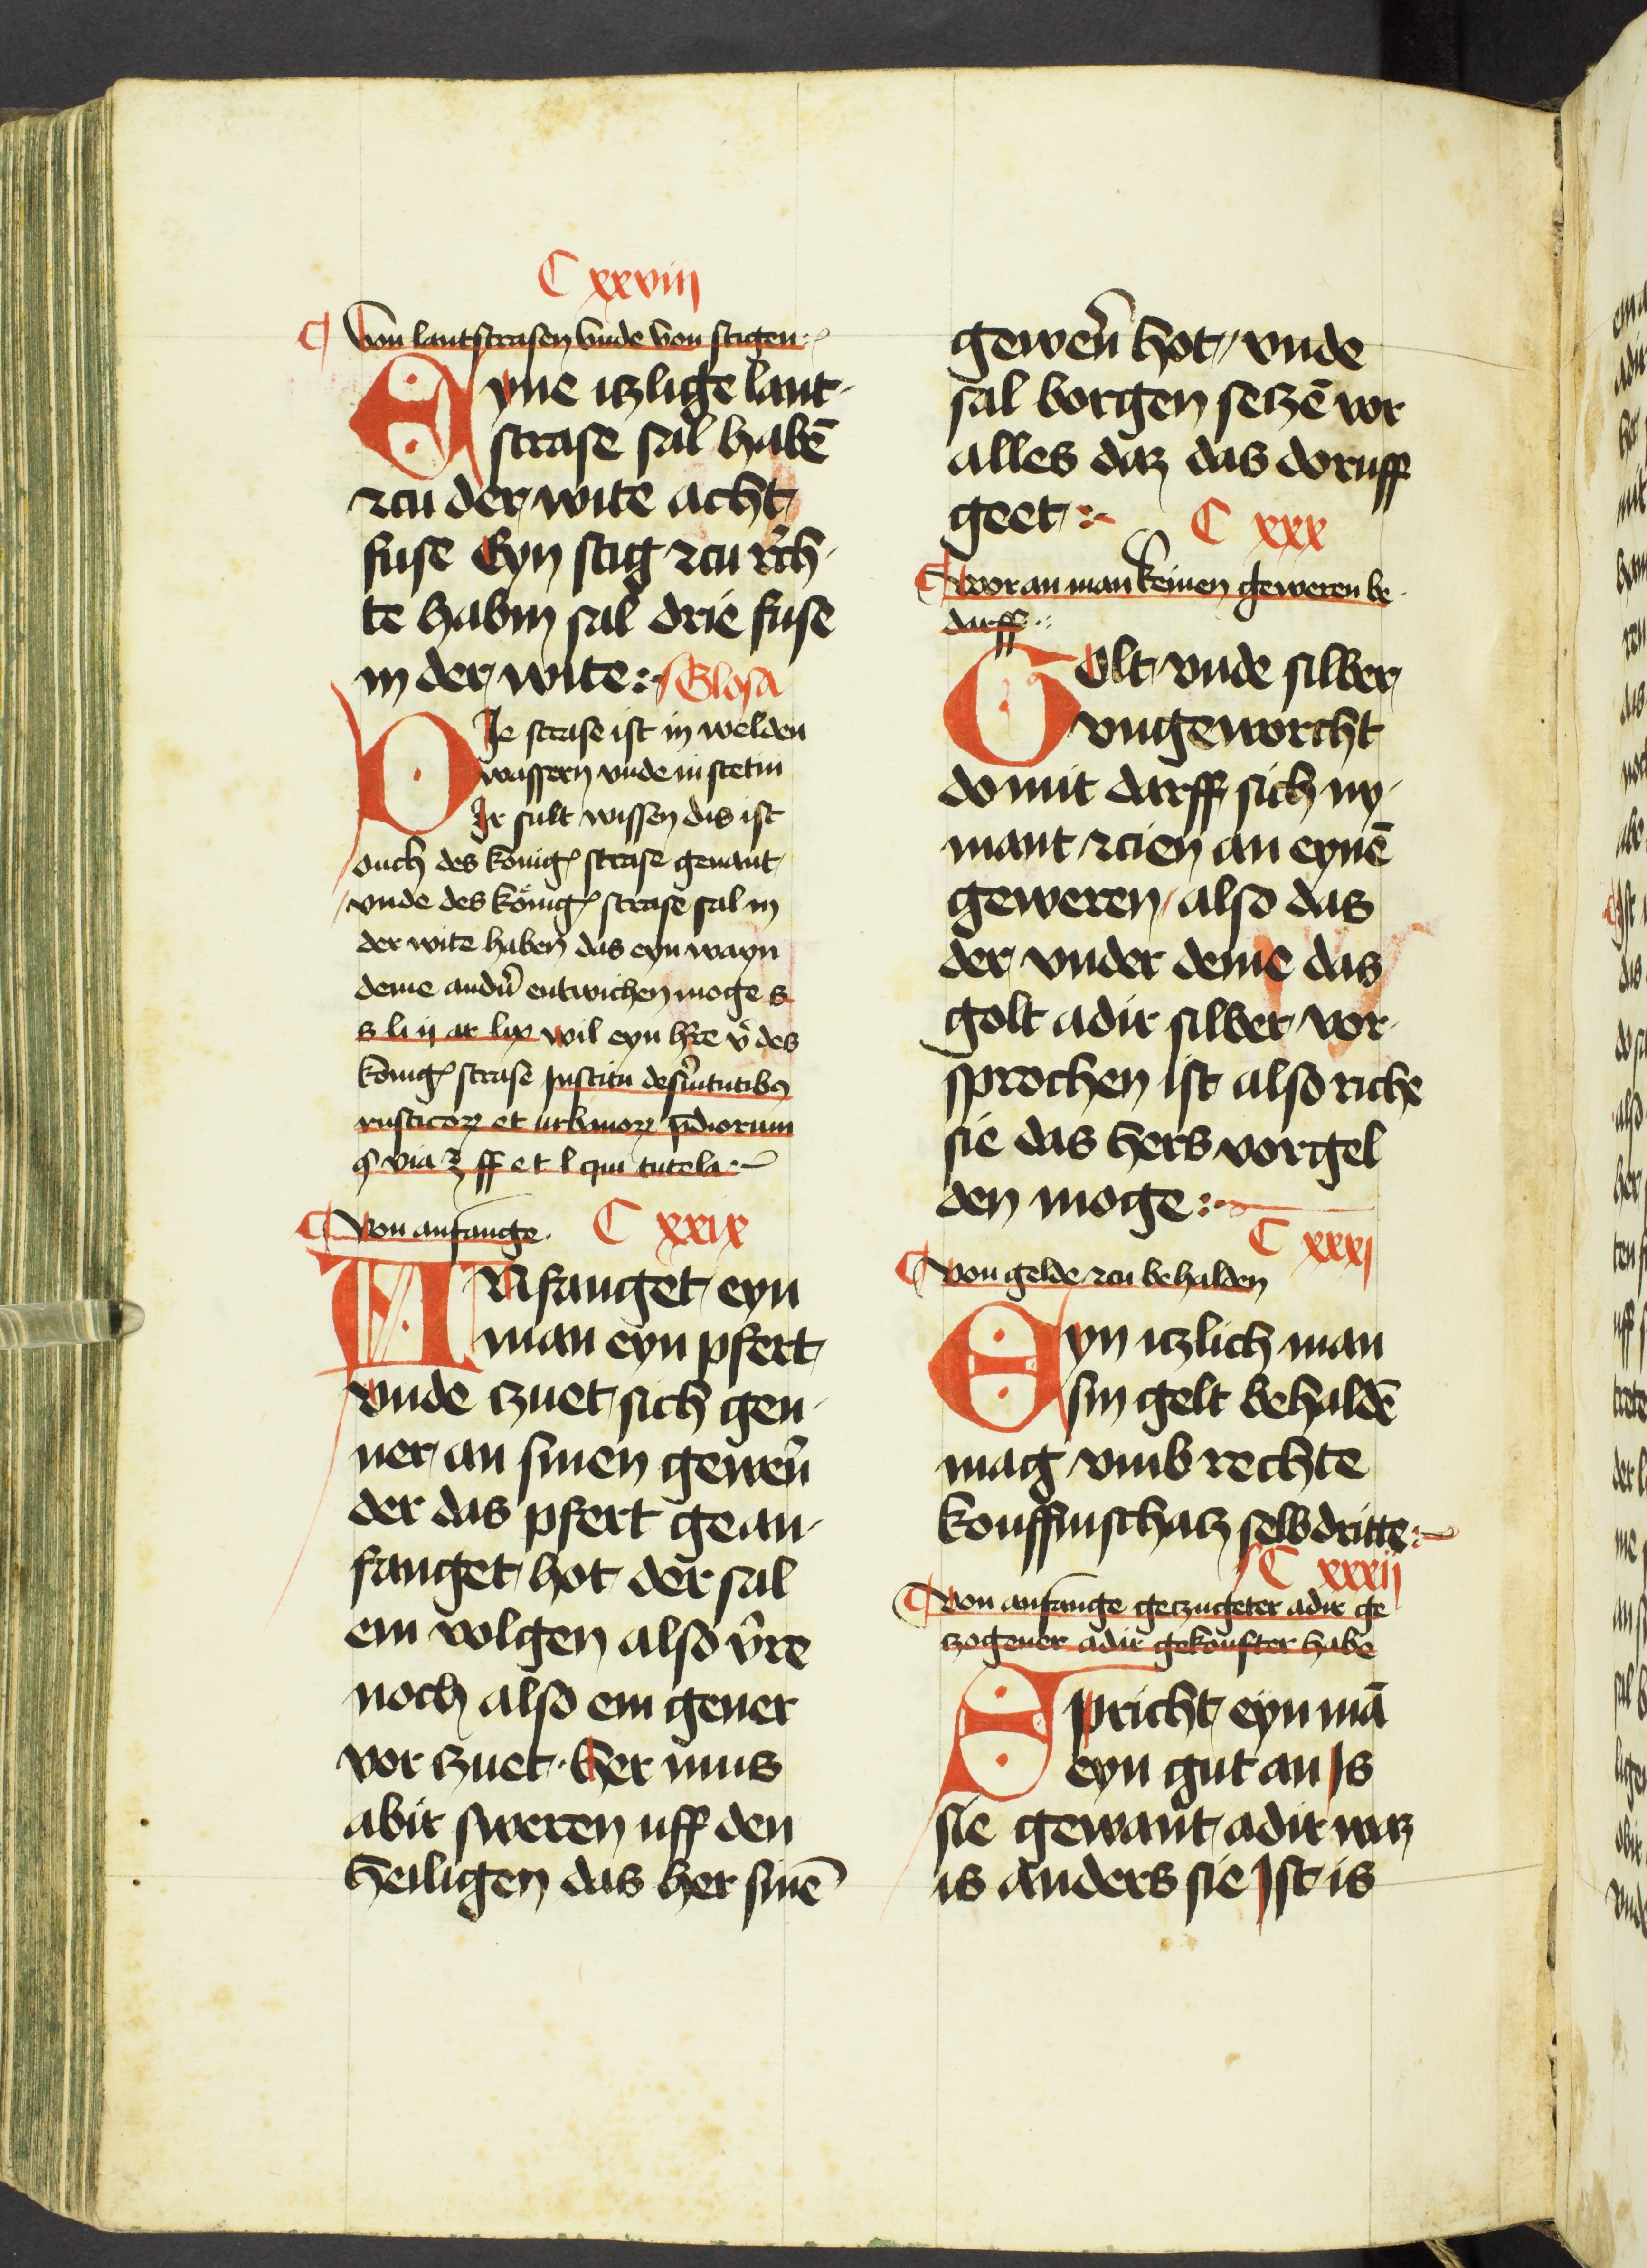 C xxviii
Von lantstrasen vnde von stigen
Eyne itzlige lant
strase sal habē
zcu der wite acht
fuse Eyn stig zcu rech
te habin sal drie fuse
in der wite Glosa
Die strase ist in welden
wassern vnde in stetin
Ir sult wissen dis ist
ouch des konigꝭ strase genant
vnde des konigꝭ strase sal in
der wite haben das eyn wayn
deme andn̄ entwichen moge s
s li ij ar lix wil eyn h̓re v̓ des
konigꝭ strase Institu de s̓uitutibꝰ
rusticoꝝ et urbanoꝝ p̄diorum
et l qui tutela
Von anfange C xxix
ANfanget eyn
man eyn pfert
vnde czuet sich gen
ner an sinen gewern̄
der das pfert gean
fanget hot der sal
em volgen also v̓re
noch also em gener
vor czuet Her mus
abir sweren uff den
heiligen das her sinē
gewern̄ hot vnde
sal borgen seczē vor
alles daz das doruff
geet C xxx
Wor an man keinen geweren be
darff
GOlt vnde silber
vngeworcht
do mit darff sich ny
mant zcien an eynē
geweren also das
der vnder deme das
golt adir silber vor
sprochen ist also riche
sie das hers vorgel
den moge
C xxxi
Von gelde zcu behalden
Eyn itzlich man
sin gelt behaldē
mag vmb rechte
kouffinschatz selbdritte
C xxxii
Von anfange geczugeter adir ge
zogener adir gekoufter habe
Spricht eyn mā
eyn gut an Is
sie gewant adir waz
is anders sie Ist is